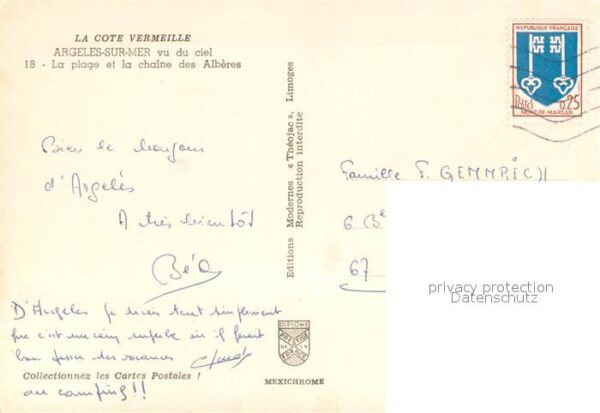 LA COTE VERMEILLE
ARGELES-SUR-MER vu du ciel
18 - La plage et la chaîne des Albères
REPUBLIQUE FRANÇAISE
Postes 0,25
MONT-DE-MARSAN
Editions Modernes « Théojac », Limoges
Reproduction interdite
Bien le bonjour
d'Argelès
A très bientôt
Béa
Famille F. GEMMRICH
6 Bd
67
privacy protection
Datenschutz
D'Argelès je dirais tout simplement
que c'est un coin superbe où il fait
bon passer des vacances
DIPLOME
PRESTIGE
DE LA
FRANCE
Collectionnez les Cartes Postales !
MEXICHROME
au camping!!